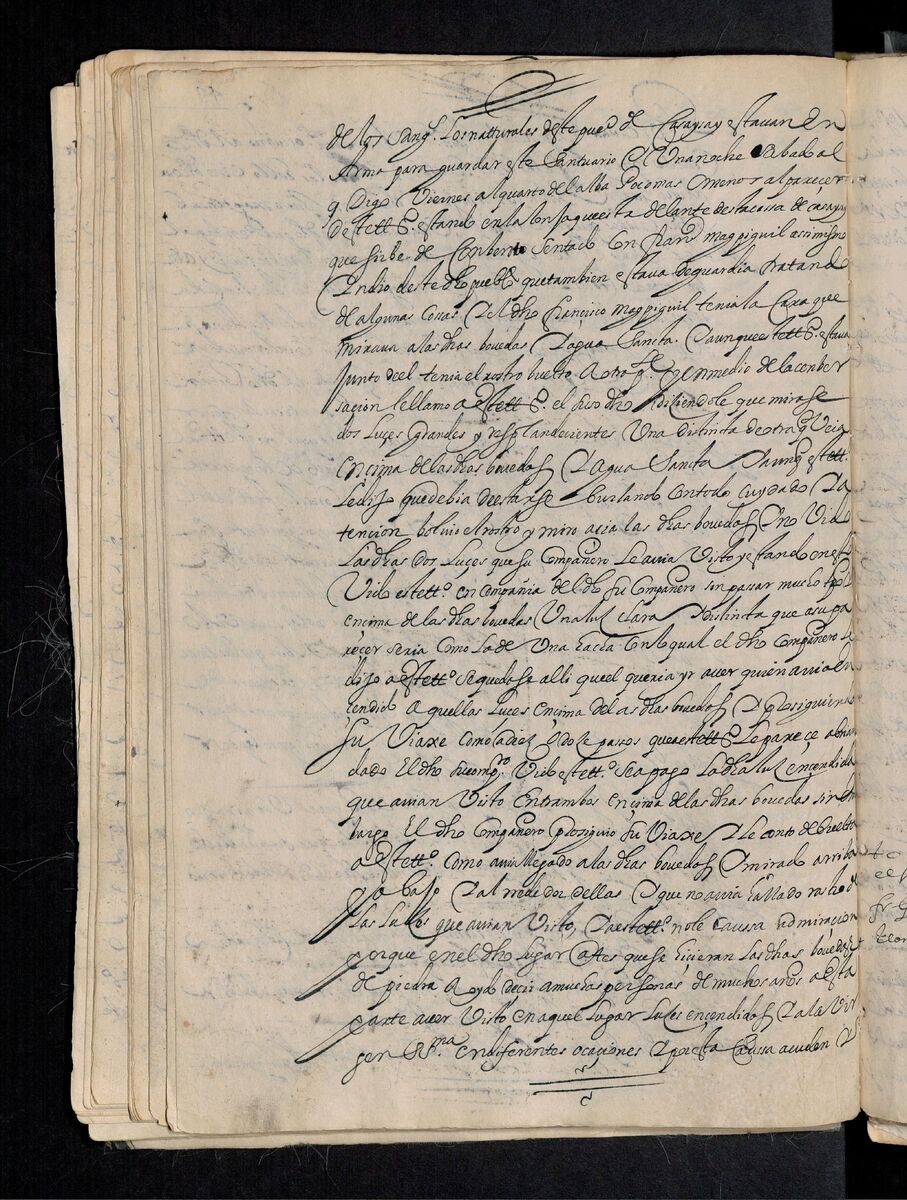 de los Sang.s Los natturales deste pue.o de Casaysay estavan En
Arma para guardar este Santuario Y Una noche Sabado al
q Digo Viernes al quarto del alba Pocomas Omenos al parecer
deste tt.o estando en la lonja que esta delante destacassa de casaysay
que sirbe de Conbento Sentado Con fran.co mappiguil assimismo
Yndio deste dho pueblo que tambien estava de guardia tratando
de algunas cossas Y el dho francisco mappiguil tenia la Caxa que
mirava a las dhas bovedas Y agua Sancta. Y aunque este tt.o estava
Junto deel tenia el rostro buelto A otra p.te Y en medio de la conber
sacion le llamo a Este tt.o el susodho disiendole que mirase
dos Luçes grandes y resplandecientes Una distinta de otra q Veia
Encima de las dhas bovedas Y agua Sancta Y aunq este tt.o
Le dijo que debia de estarse burlando con todo Cuydado Y a
tencion bolvio el rostro y miro acia las dhas bovedas Y no Vido
Las dhas dos Luçes que su Compañero Le avia Visto y estando en esto
Vido este tt.o en Compañia del dho su Compañero sin passar mucho tpo
encima de las dhas bovedas Una luz clara Y distinta que a su pa
recer seria como La de Una hacha con lo qual el dho Compañero Le
dijo a Este tt.o se quedase alli que el queria yr a ver quien avia En
cendido Aquellas Luces Encima de las dhas bovedas Y prosiguiendo
Su Viaxe como a diez o doze pasos que a este tt.o Le pareçe abia an
dado El dho su comp.ro Vido este tt.o se apago La dha luz encendida
que avian Visto Entrambos encima de las dhas bovedas sin Em
bargo El dho Compañero prosiguio su Viaxe Y le conto de buelta
a Este tt.o Como avia llegado a las dhas bovedas Y mirado arriba
Y abajo Y al rrededor dellas Y que no avia hallado rastro de
Las Luces que avian Visto, Y a este tt.o no le caussa admiracion
porque en el dho Lugar antes que se hicieran Las dhas bovedas
de piedra A oydo decir a muchas personas de muchos años a Esta
parte aver Visto en aquel Lugar Luces encendidas Y a la Vir
gen SS.ma en diferentes ocaçiones Y por esta Caussa acuden Y